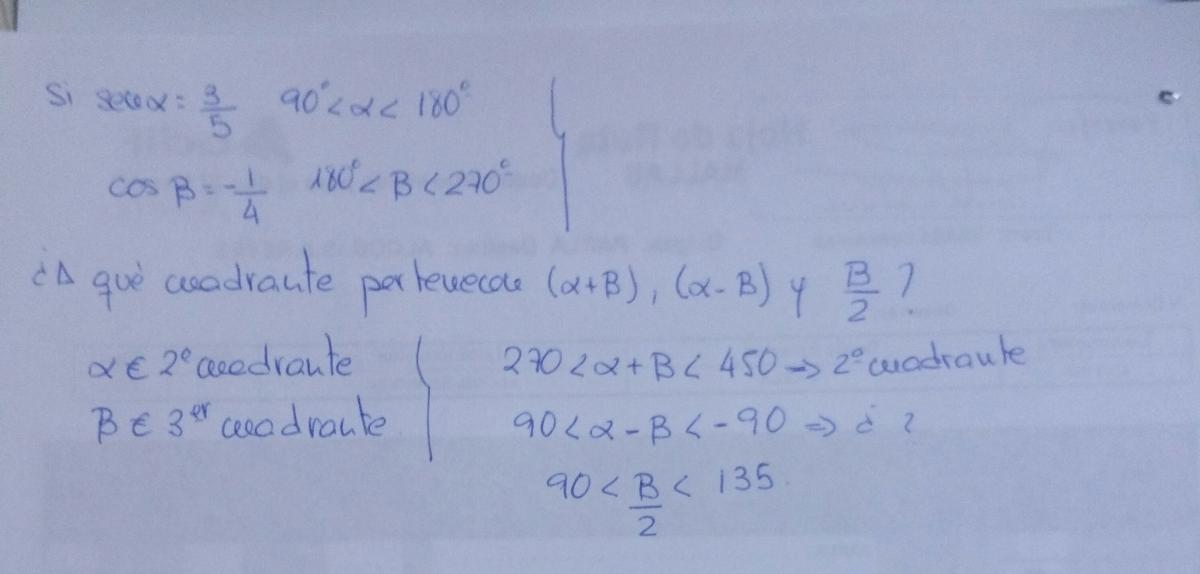 Si sen α = 3/5 90° < α < 180°
cos B = -1/4 180° < B < 270°
¿A qué cuadrante pertenecen (α+B), (α-B) y B/2 ?
α ∈ 2º cuadrante
B ∈ 3er cuadrante
270 < α + B < 450 => 2º cuadrante
90 < α - B < -90 => ¿ ?
90 < B/2 < 135
Hoja de Ruta